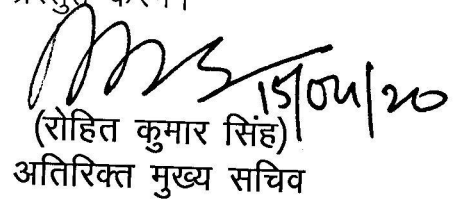 15/04/20
(रोहित कुमार सिंह)
अतिरिक्त मुख्य सचिव